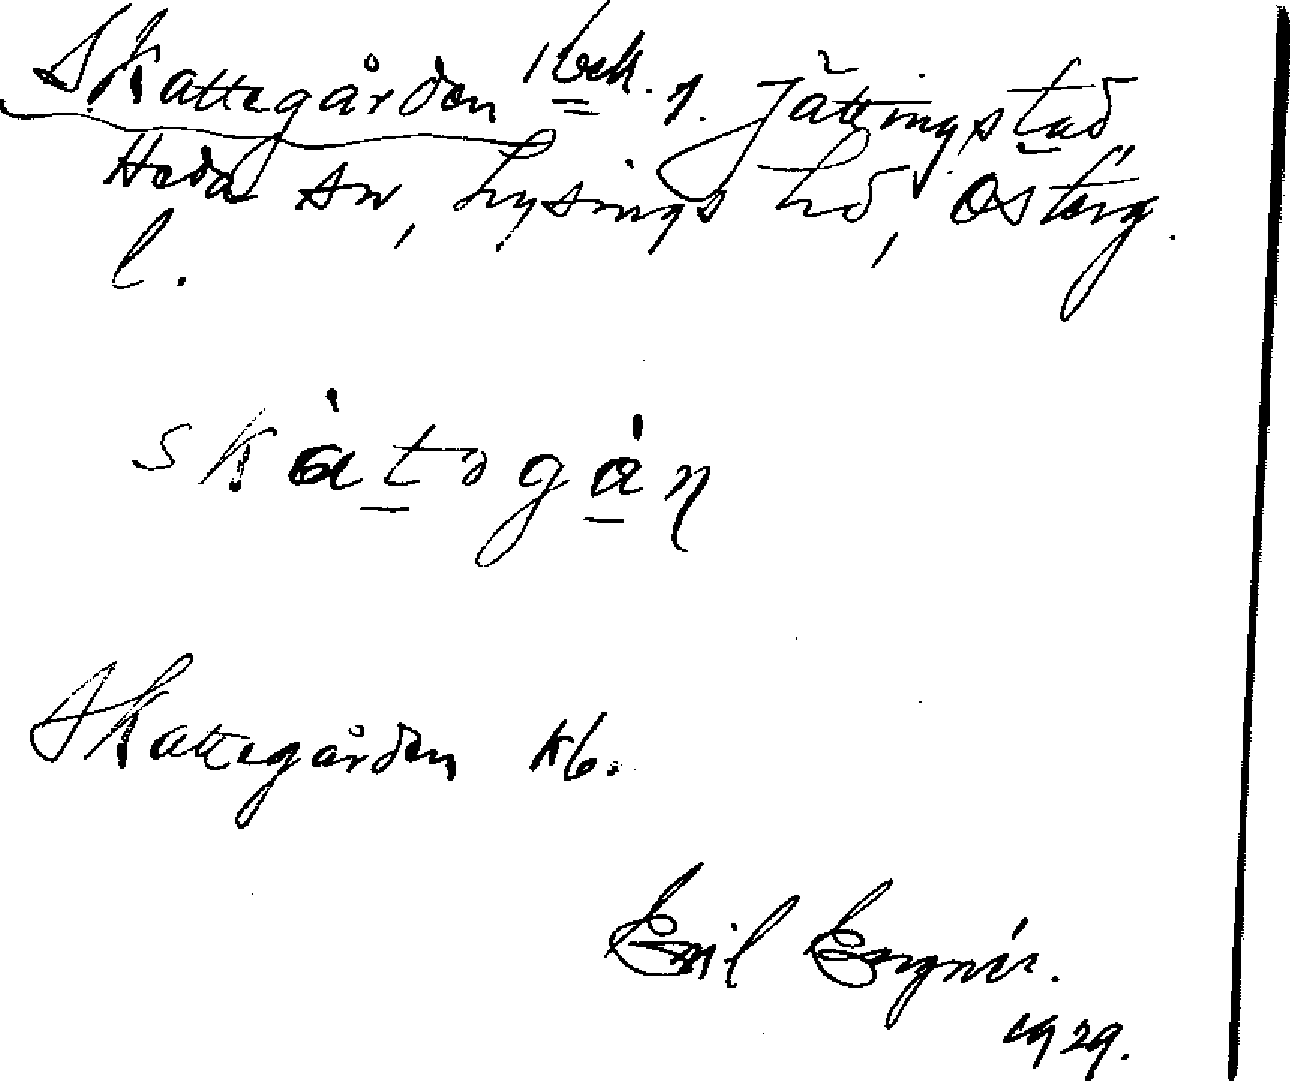 Skattegården 1 bek. i. Jättingstad
Heda sn, Lysings hd, Österg.
l.
skàtəgán
Skattegården kb.
Emil
1929.